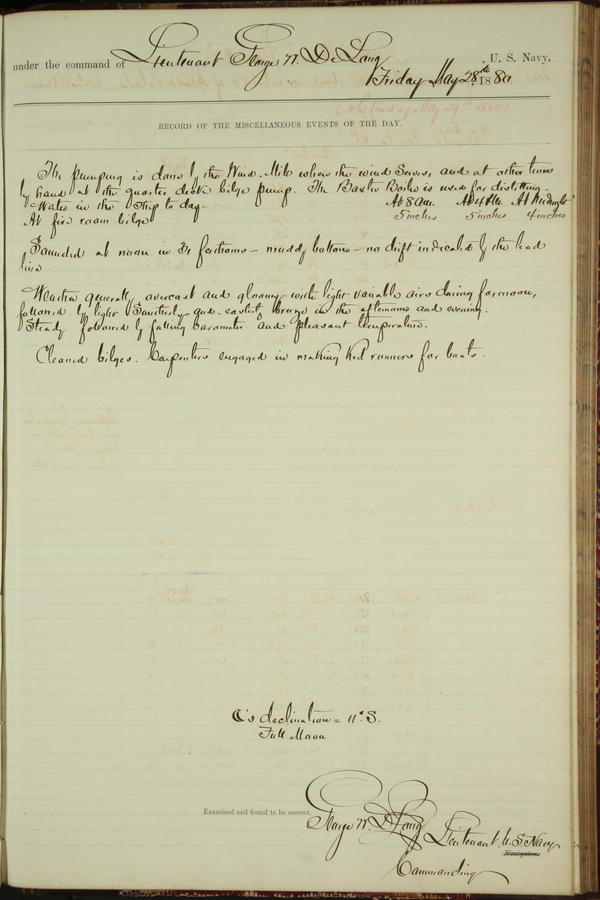 under the command of Lieutenant George W. De Long, U. S. Navy.
Friday May 28th 1880
(Saturday May 29th 1880)
RECORD OF THE MISCELLANEOUS EVENTS OF THE DAY.
The pumping is done by the Wind-Mill when the wind serves, and at other times
by hand at the quarter deck bilge pump. The Baxter Boiler is used for distilling.
Water in the Ship to day. At 8 AM. At 4 PM. At Midnight
At fire room bilge 5 inches 5 inches 4 inches
Sounded at noon in 31 fathoms - muddy bottom - no drift indicated by the lead
line.
Weather generally overcast and gloomy with light variable airs during forenoon,
followed by light Southerly and easterly breeze in the afternoon and evening.
Steady followed by falling barometer and pleasant temperature.
Cleaned bilges. Carpenters engaged in making keel runners for boats.
☾'s declination = 11° S.
Full Moon
Examined and found to be correct.
George W. De Long Lieutenant U. S. Navy
Navigator.
Commanding